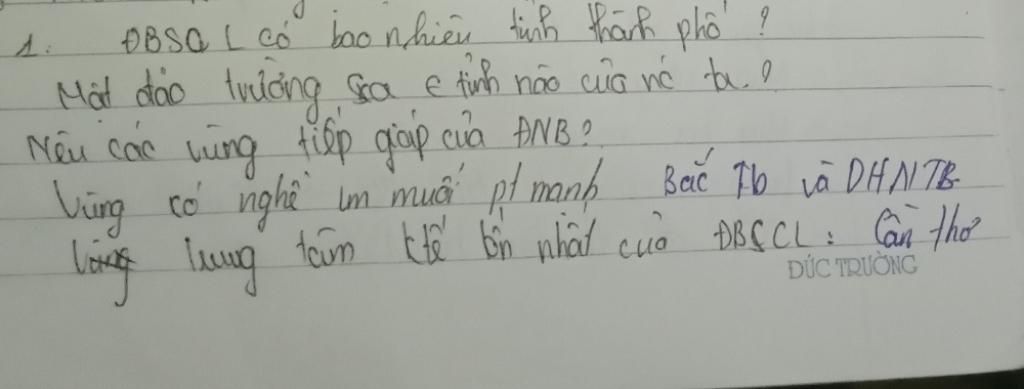 1. ĐBSCL có bao nhiêu tỉnh thành phố ?
Một đảo trường sa ∈ tỉnh nào của nc ta ?
Nêu các vùng tiếp giáp của ĐNB ?
Vùng có nghề lm muối pt mạnh Bắc Tb và DHNTB
trung tâm ktế lớn nhất của ĐBSCL : Cần thơ
ĐỨC TRƯỜNG